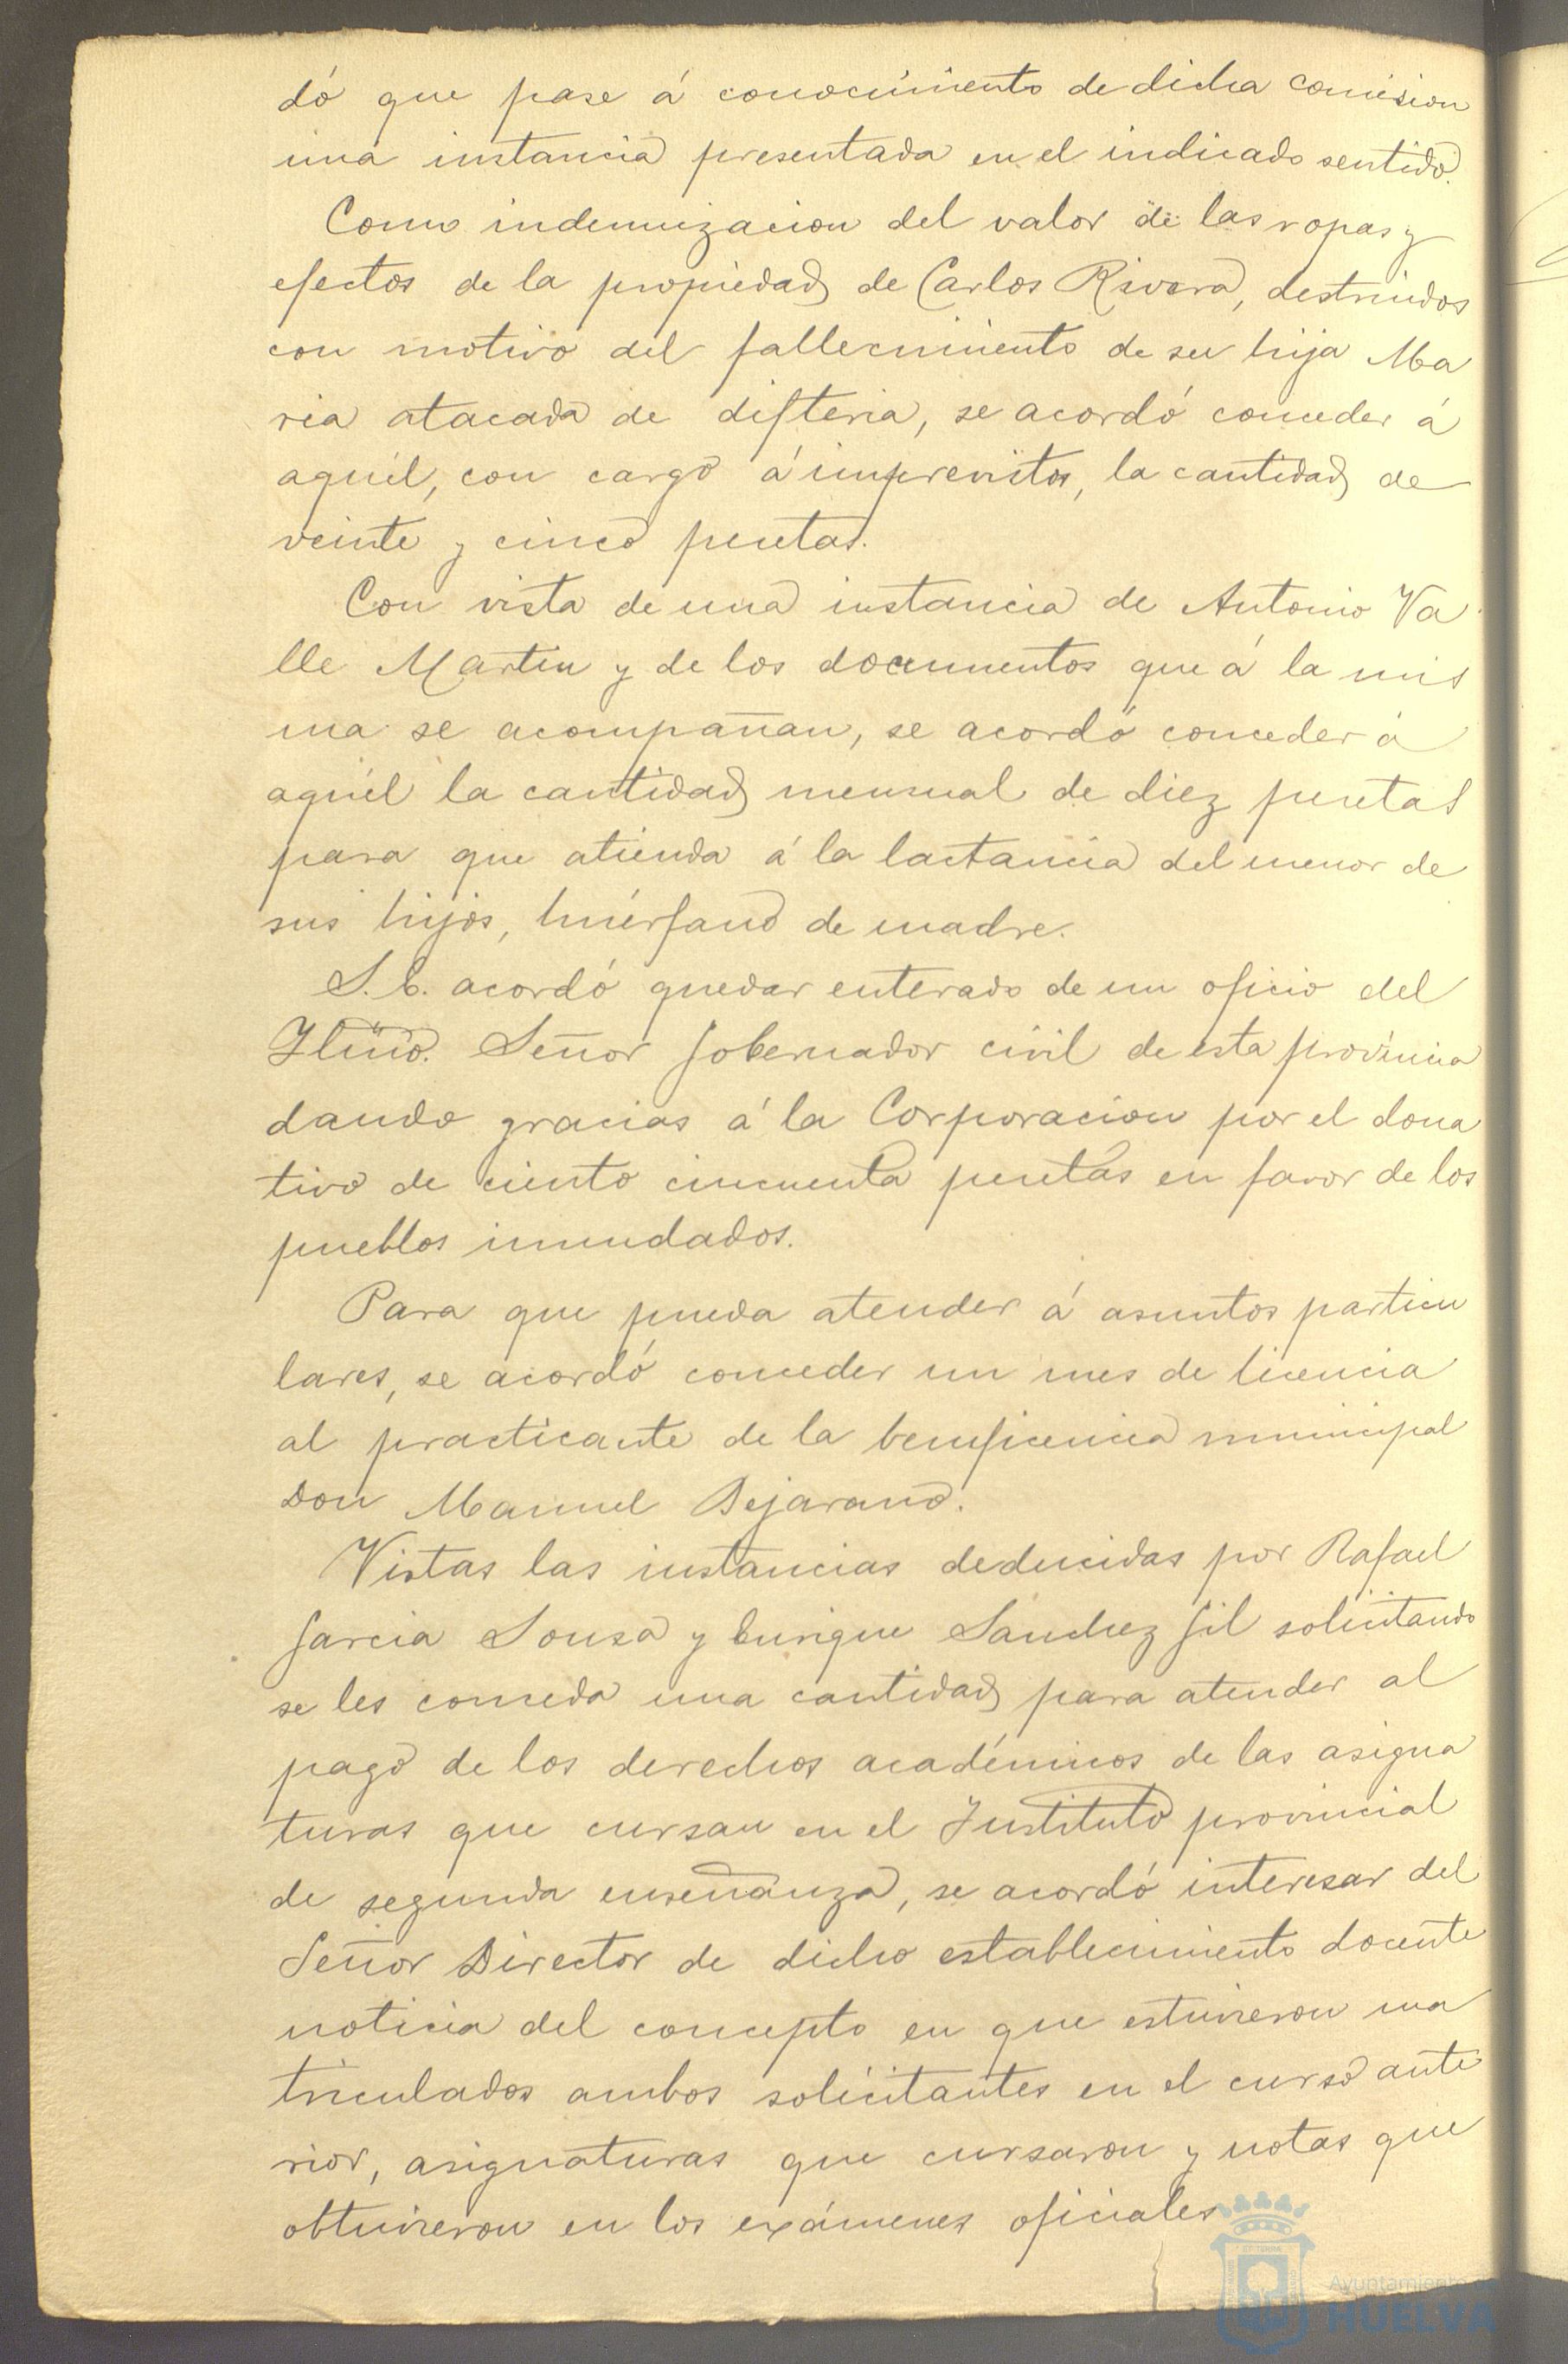 dó que pase á conocimiento de dicha comision
una instancia presentada en el indicado sentido.
Como indemnizacion del valor de las ropas y
efectos de la propiedad de Carlos Rivera, destruidos
con motivo del fallecimiento de su hija Ma
ria atacada de difteria, se acordó conceder á
aquél, con cargo á imprevistos, la cantidad de
veinte y cinco pesetas.
Con vista de una instancia de Antonio Va
lle Martin y de los documentos que á la mis
ma se acompañan, se acordó conceder á
aquél la cantidad mensual de diez pesetas
para que atienda á la lactancia del menor de
sus hijos, huérfano de madre.
S. E. acordó quedar enterado de un oficio del
Iltmo. Señor Gobernador civil de esta provincia
dando gracias á la Corporacion por el dona
tivo de ciento cincuenta pesetas en favor de los
pueblos inundados.
Para que pueda atender á asuntos particu
lares, se acordó conceder un mes de licencia
al practicante de la beneficencia municipal
Don Manuel Bejarano.
Vistas las instancias deducidas por Rafael
Garcia Sousa y Enrique Sánchez Gil solicitando
se les conceda una cantidad para atender al
pago de los derechos académicos de las asigna
turas que cursan en el Instituto provincial
de segunda enseñanza, se acordó interesar del
Señor Director de dicho establecimiento docente
noticia del concepto en que estuvieron ma
triculados ambos solicitantes en el curso ante
rior, asignaturas que cursaron y notas que
obtuvieron en los exámenes oficiales
Ayuntamiento de
HUELVA